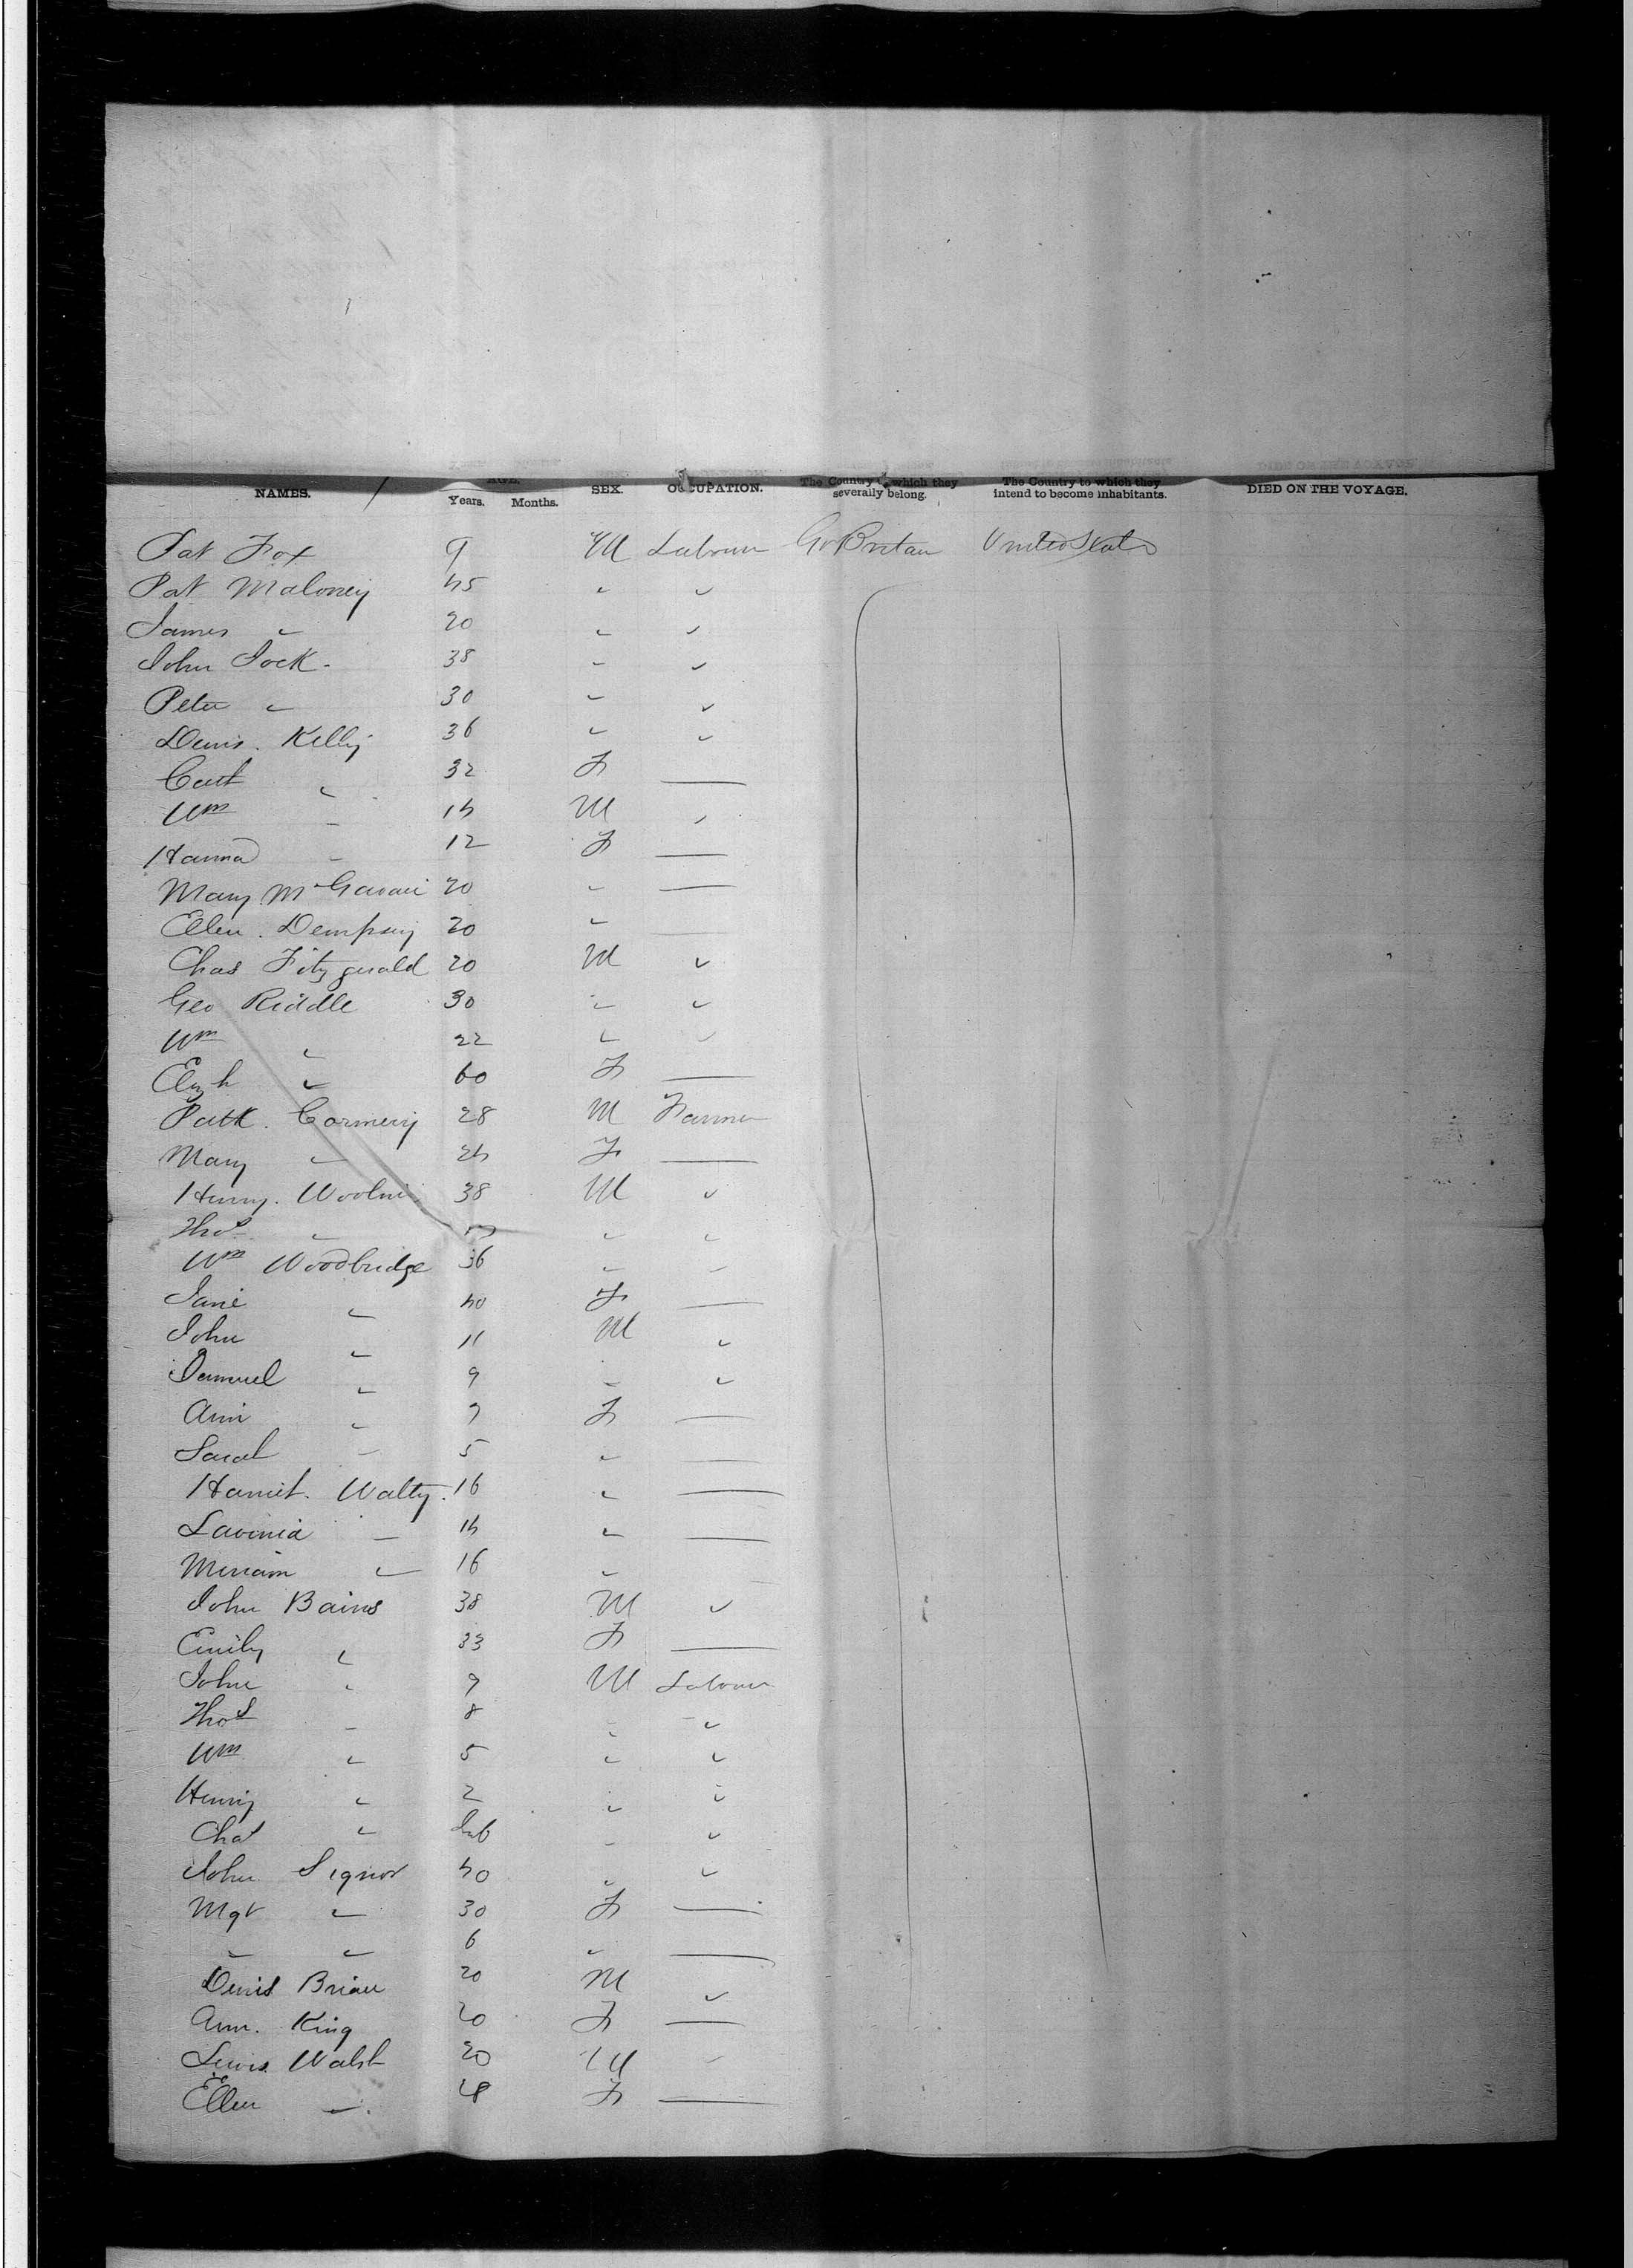 NAMES. AGE. Years. Months. SEX. OCCUPATION. The Country to which they severally belong. The Country to which they intend to become inhabitants. DIED ON THE VOYAGE.
Pat Fox 9 M Labourer Gr Britain United States
Pat Maloney 45 " "
James " 20 " "
John Jock 38 " "
Peter " 30 " "
Denis Kelly 36 " "
Cath " 32 F —
Wm " 14 M "
Hanna " 12 F —
Mary 20 " —
Ellen Dempsey 20 " —
Chas Fitzgerald 20 M "
Geo Riddle 30 " "
Wm " 22 " "
Elizh " 60 F —
Patk Cormery 28 M Farmer
Mary " 24 F —
Henry 38 M "
Thos " " "
Wm Woodbridge 36 " "
Jane " 40 F —
John " 11 M "
Samuel " 9 " "
Ann " 7 F —
Sarah " 5 " —
Harriet Walty 16 " —
Lavinia " 14 " —
Miriam " 16 " —
John Bains 38 M "
Emily " 33 F —
John " 9 M Labourer
Thos " 8 " "
Wm " 5 " "
Henry " 2 " "
Chas " Inf " "
John Signor 40 " "
Mgt " 30 F —
" " 6 " —
Denis Brian 20 M "
Ann King 20 F —
Lewis Walsh 20 M "
Ellen " 18 F —